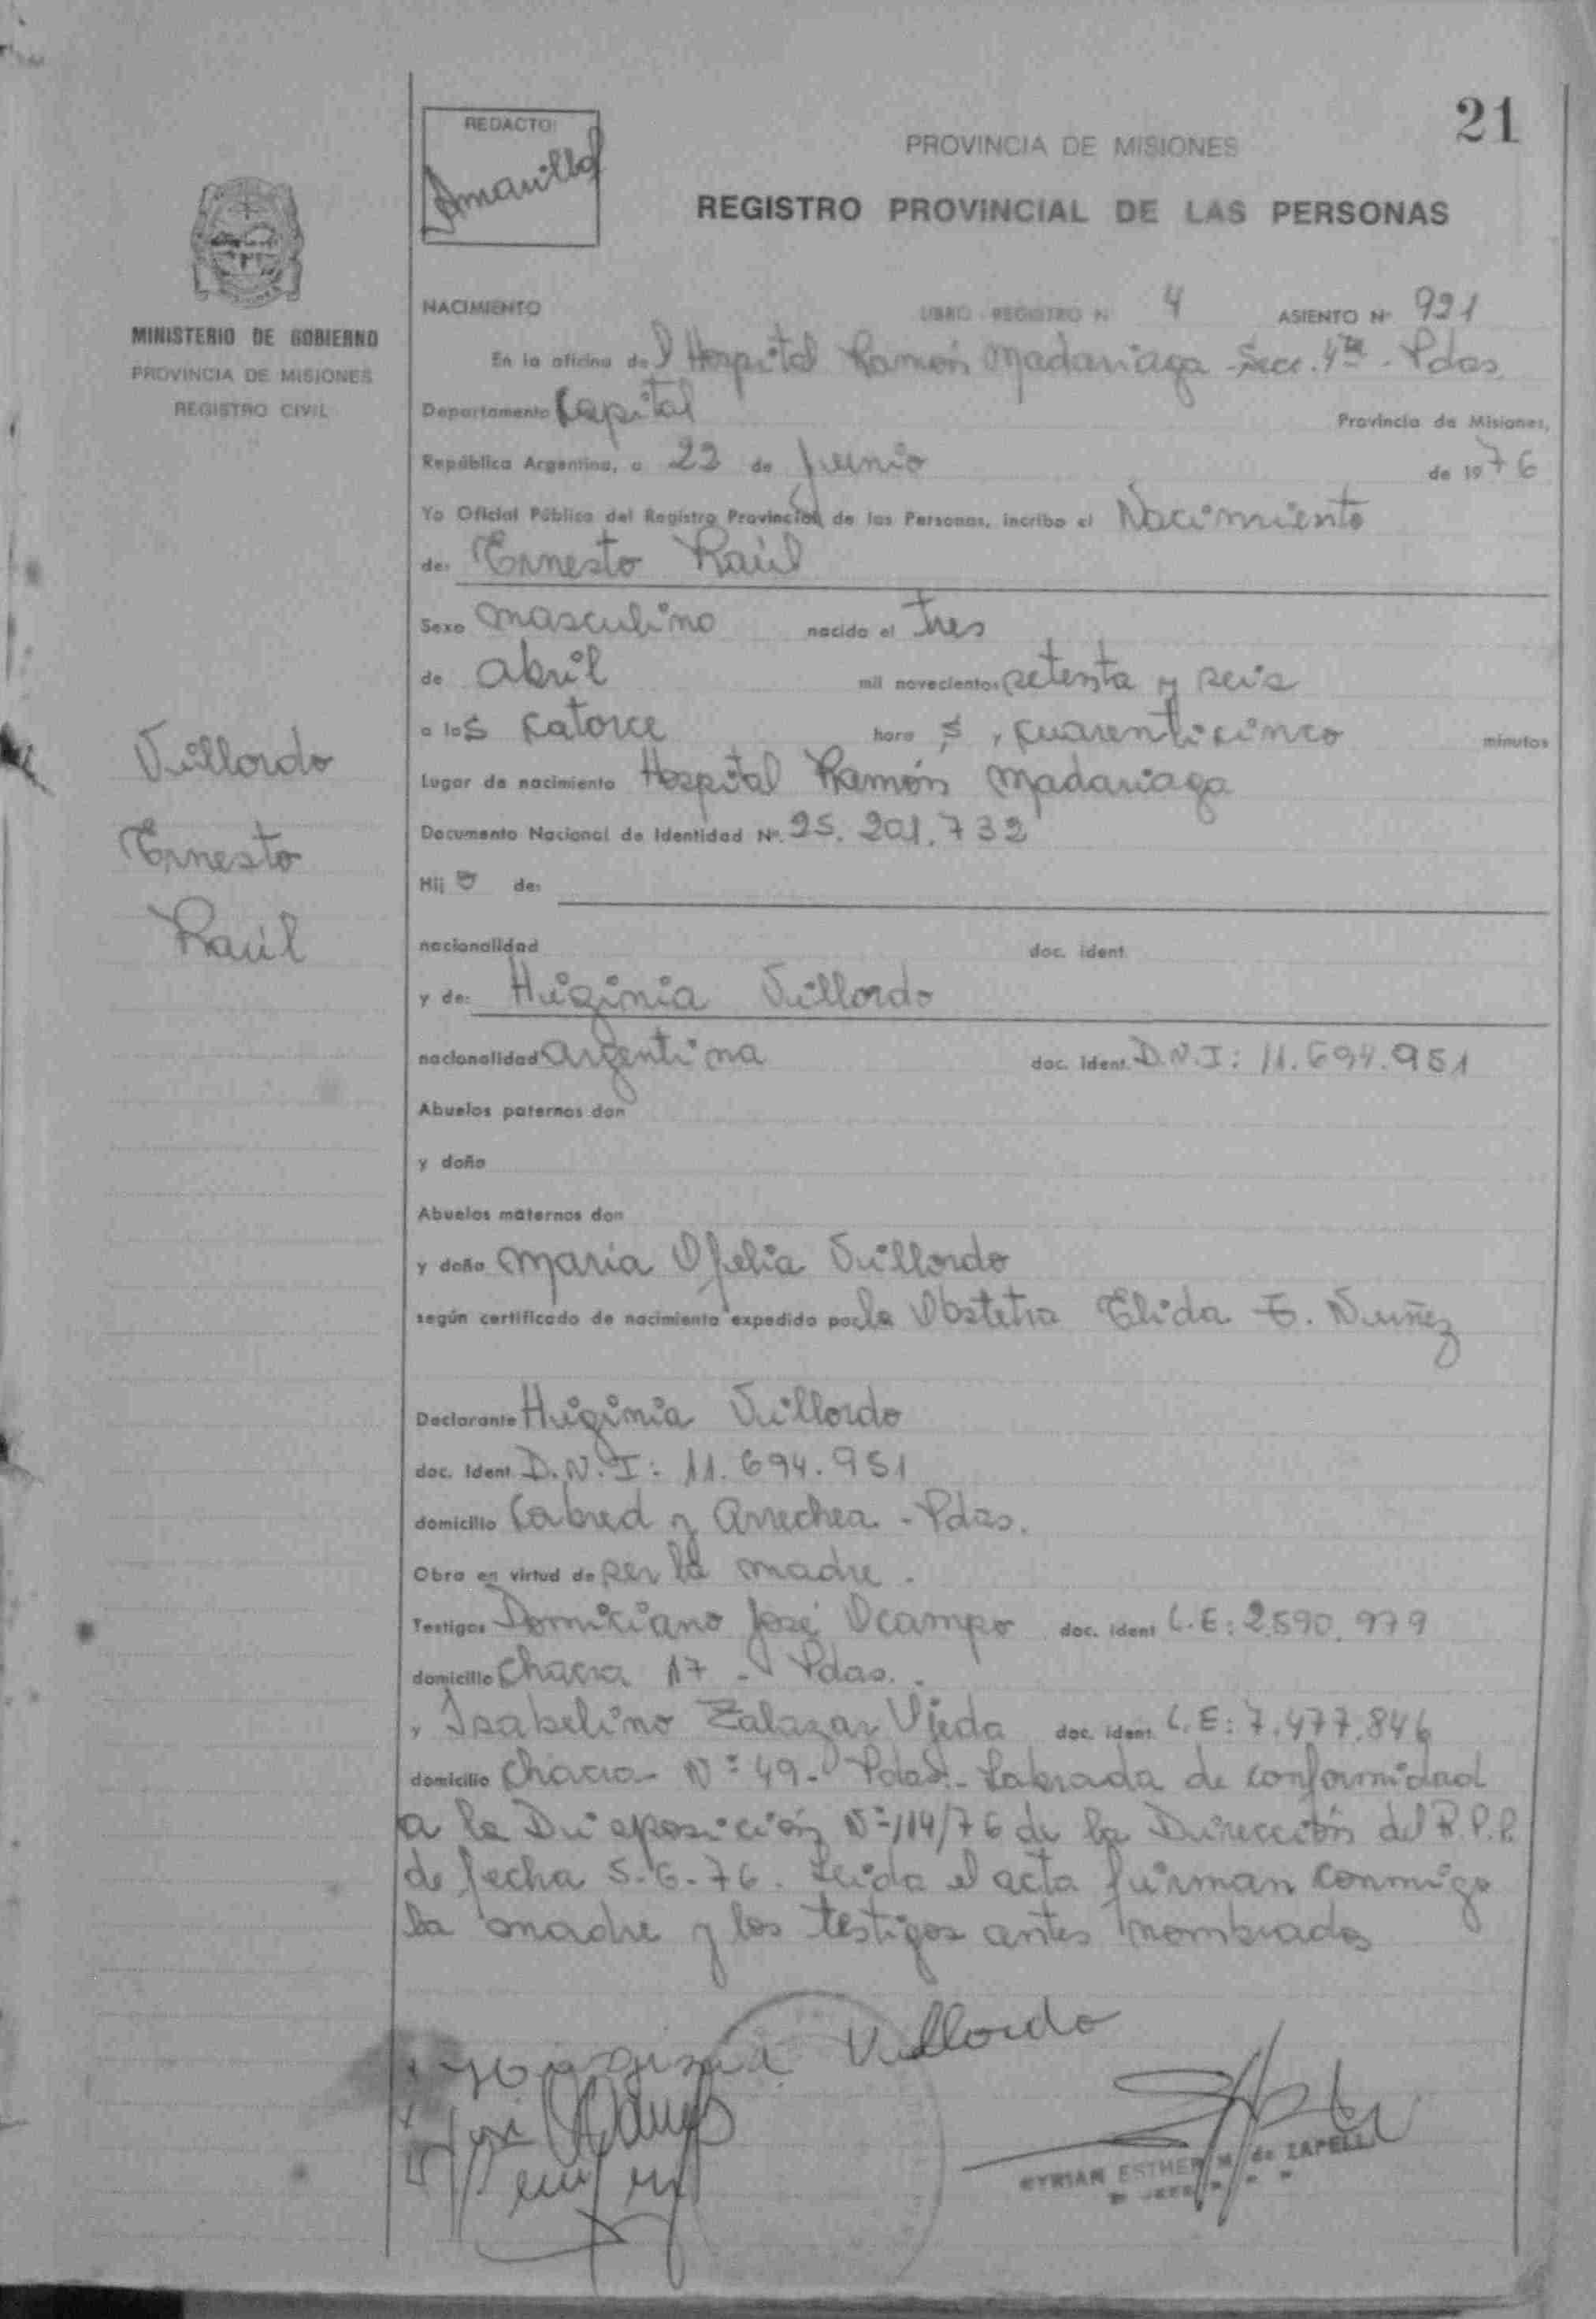 21
REDACTO:
Amarilla
PROVINCIA DE MISIONES
REGISTRO PROVINCIAL DE LAS PERSONAS
MINISTERIO DE GOBIERNO
PROVINCIA DE MISIONES
REGISTRO CIVIL
NACIMIENTO LIBRO REGISTRO Nº 4 ASIENTO Nº 921
En la oficina del Hospital Ramón Madariaga - Secc. 4ta - Pdas.
Departamento Capital Provincia de Misiones,
República Argentina, a 22 de Junio de 1976
Yo Oficial Público del Registro Provincial de las Personas, incribo el Nacimiento
de: Ernesto Raúl
Sexo masculino nacido el tres
de abril mil novecientos setenta y seis
a las catorce horas, cuarenticinco minutos
Lugar de nacimiento Hospital Ramón Madariaga
Documento Nacional de Identidad Nº. 25.201.732
Hijo de:
nacionalidad doc. ident.
y de: Higinia Villordo
nacionalidad argentina doc. ident. D.N.I: 11.694.951
Abuelos paternos don
y doña
Abuelos maternos don
y doña María Ofelia Villordo
según certificado de nacimiento expedido por la Obstetra Elida E. Nuñez
Declarante Higinia Villordo
doc. Ident. D.N.I: 11.694.951
domicilio Cabred y Arrechea - Pdas.
Obra en virtud de ser la madre.
Testigos Domiciano José Ocampo doc. ident L.E: 2.590.979
domicilio Chacra 17 - Pdas.
y Isabelino Zalazar Ojeda doc. ident. L.E: 7.477.846
domicilio Chacra Nº 49 - Pdas. - Labrada de conformidad
a la Disposición Nº 114/76 de la Dirección del R.P.P.
de fecha 5-6-76. Leida el acta firman conmigo
la madre y los testigos antes nombrados
Villordo
Ernesto
Raúl
Higinia Villordo
MYRIAN ESTHER M. de ZAPELLI
JEFE